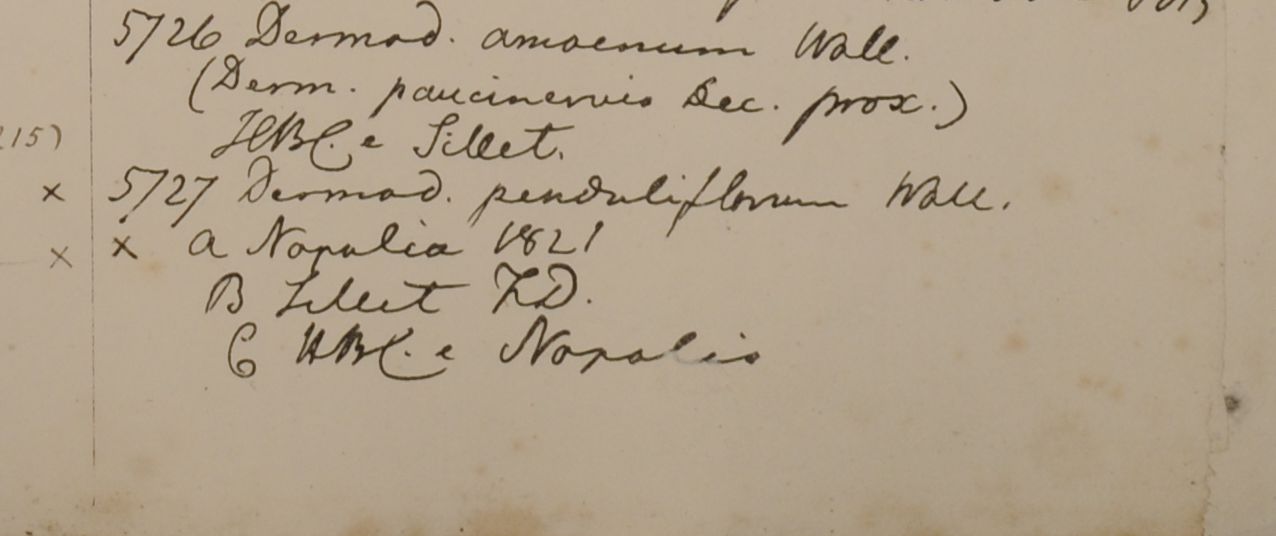 5726 Dermod. amoenum Wall.
(Derm. paucinervis Dec. prox.)
215) HBC. e Sillet.
x 5727 Dermod. penduliflorum Wall.
x x a Napalia 1821
B Sillet F.D.
C HBC. e Napalia